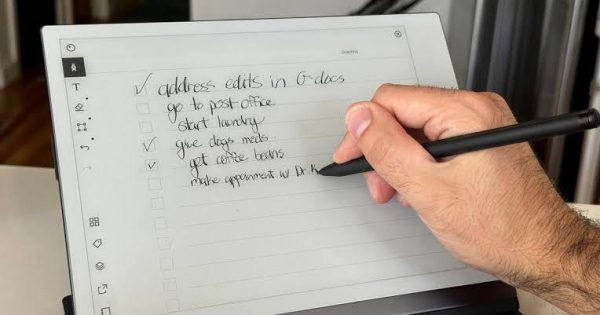 address edits in G-docs
go to post office
start laundry
give dogs meds
get coffee beans
make appoinment w/ Dr